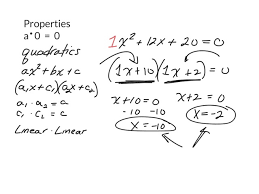 Properties
a*0 = 0
quadratics
ax² + bx + c
(a₁x + c₁)(a₂x + c₂)
a₁ · a₂ = a
c₁ · c₂ = c
Linear · Linear
1x² + 12x + 20 = 0
(1x + 10)(1x + 2) = 0
x + 10 = 0
-10 -10
x = -10
x + 2 = 0
x = -2